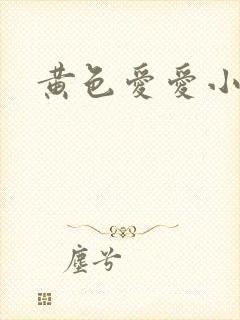 黄色愛愛小
塵兮